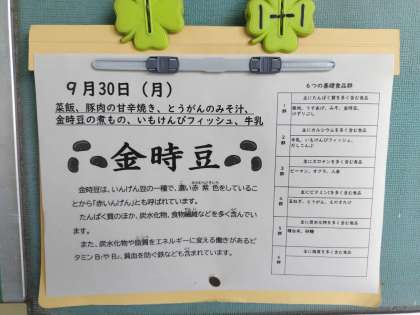 1+1
9月30日(月)
菜飯、豚肉の甘辛焼き、とうがんのみそ汁、
金時豆の煮もの、いもけんぴフィッシュ、牛乳
金時豆
金時豆は、いんげん豆の一種で、濃い赤紫色をしているこ
とから「赤いんげん」とも呼ばれています。
たんぱく質のほか、炭水化物、食物繊維などを多く含んでい
ます。
また、炭水化物や脂質をエネルギーに変える働きがあるビ
タミンB₁やB₂、貧血を防ぐ鉄なども含まれています。
6つの基礎食品群
1群
主にたんぱく質を多く含む食品
豚肉、うすあげ、みそ、金時豆、
2群
主にカルシウムを多く含む食品
牛乳、いもけんぴフィッシュ、
3群
主にカロテンを多く含む食品
ピーマン、オクラ、人参
4群
主にビタミンCを多く含む食品
玉ねぎ、とうがん、えのきたけ
5群
主に炭水化物を多く含む食品
精白米、砂糖
6群
主に脂質を多く含む食品